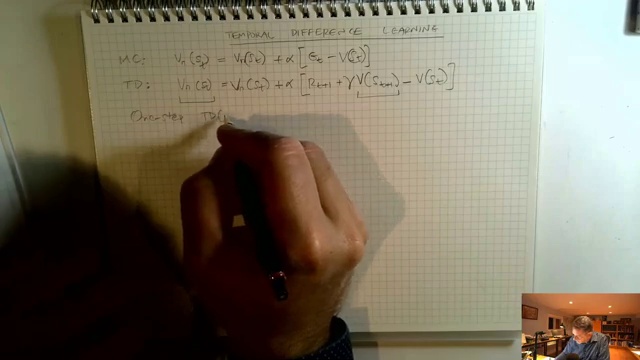 TEMPORAL DIFFERENCE LEARNING
MC: Vπ(St) = Vπ(St) + α [Gt − V(St)]
TD: Vπ(St) = Vπ(St) + α [Rt+1 + γV(St+1) − V(St)]
One-step TD(